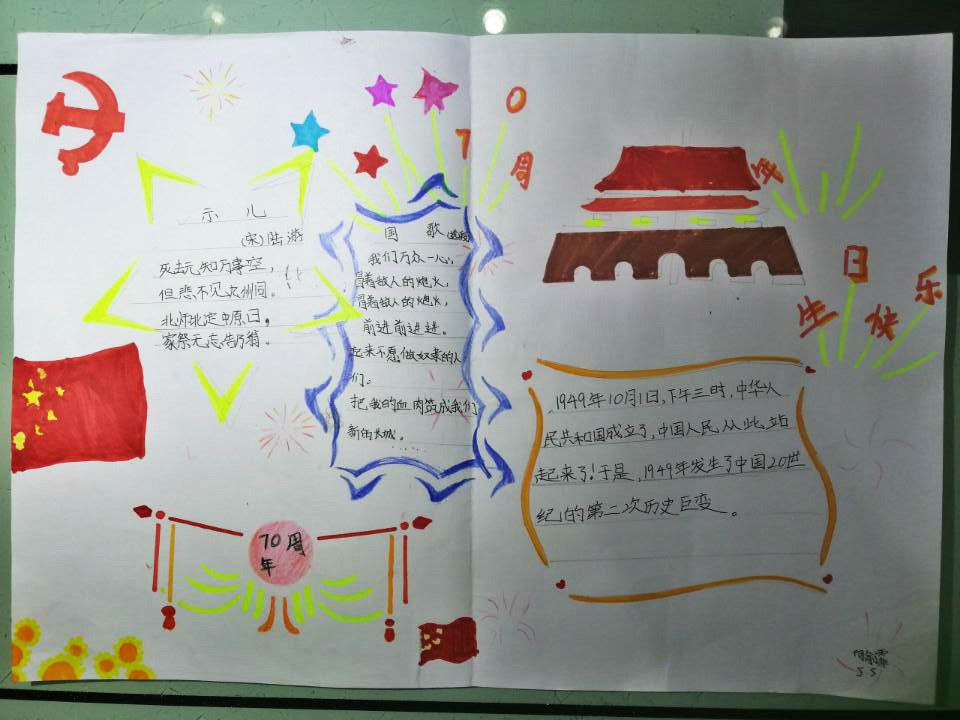 70周年
生日快乐
示儿
(宋)陆游
死去元知万事空，
但悲不见九州同。
北师北定中原日，
家祭无忘告乃翁。
国歌(选段)
我们万众一心，
冒着敌人的炮火，
冒着敌人的炮火，
前进前进进。
起来不愿做奴隶的人
们。
把我的血肉筑成我们
新的长城。
......
1949年10月1日,下午三时,中华人
民共和国成立了,中国人民从此站
起来了!于是,1949年发生了中国20世
纪的第二次历史巨变。
70周
年
55